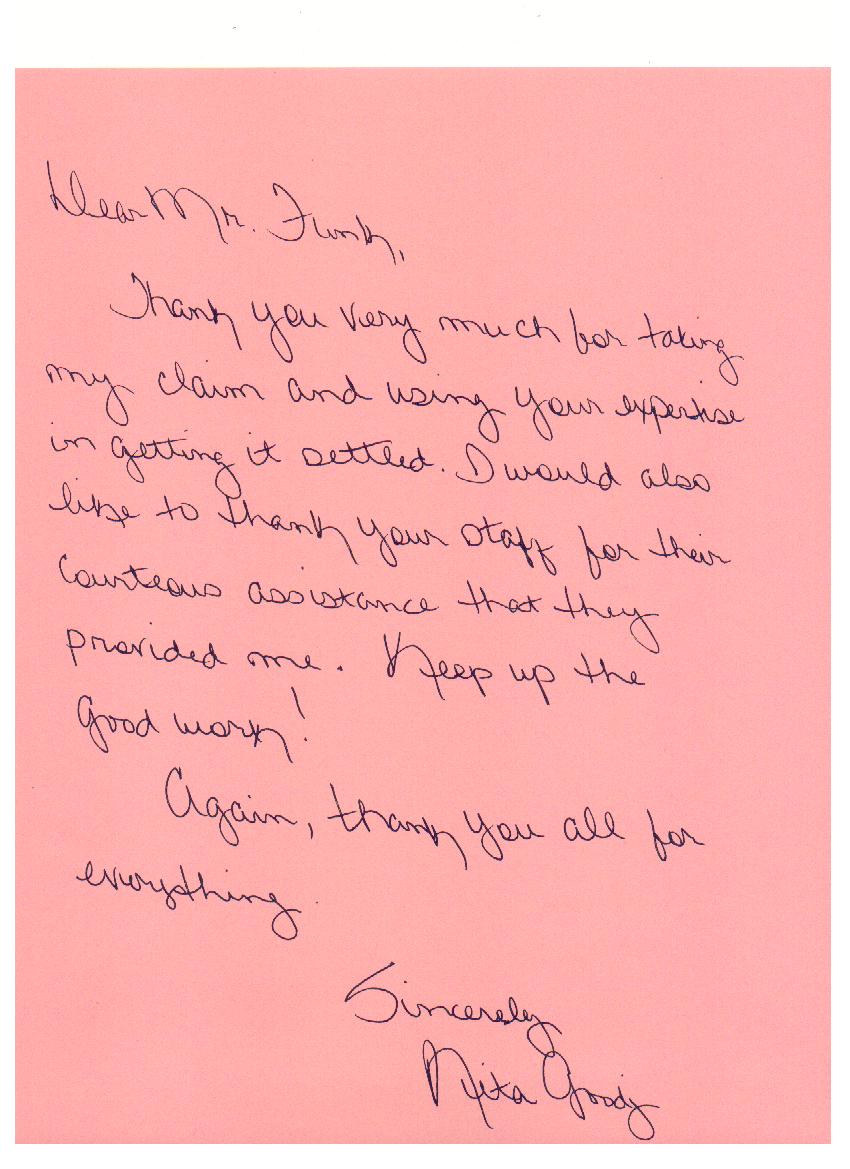 Dear Mr. Funk,
Thank you very much for taking
my claim and using your expertise
in getting it settled. I would also
like to thank your staff for their
courteous assistance that they
provided me. Keep up the
Good work!
Again, thank you all for
everything.
Sincerely
Nita Goody